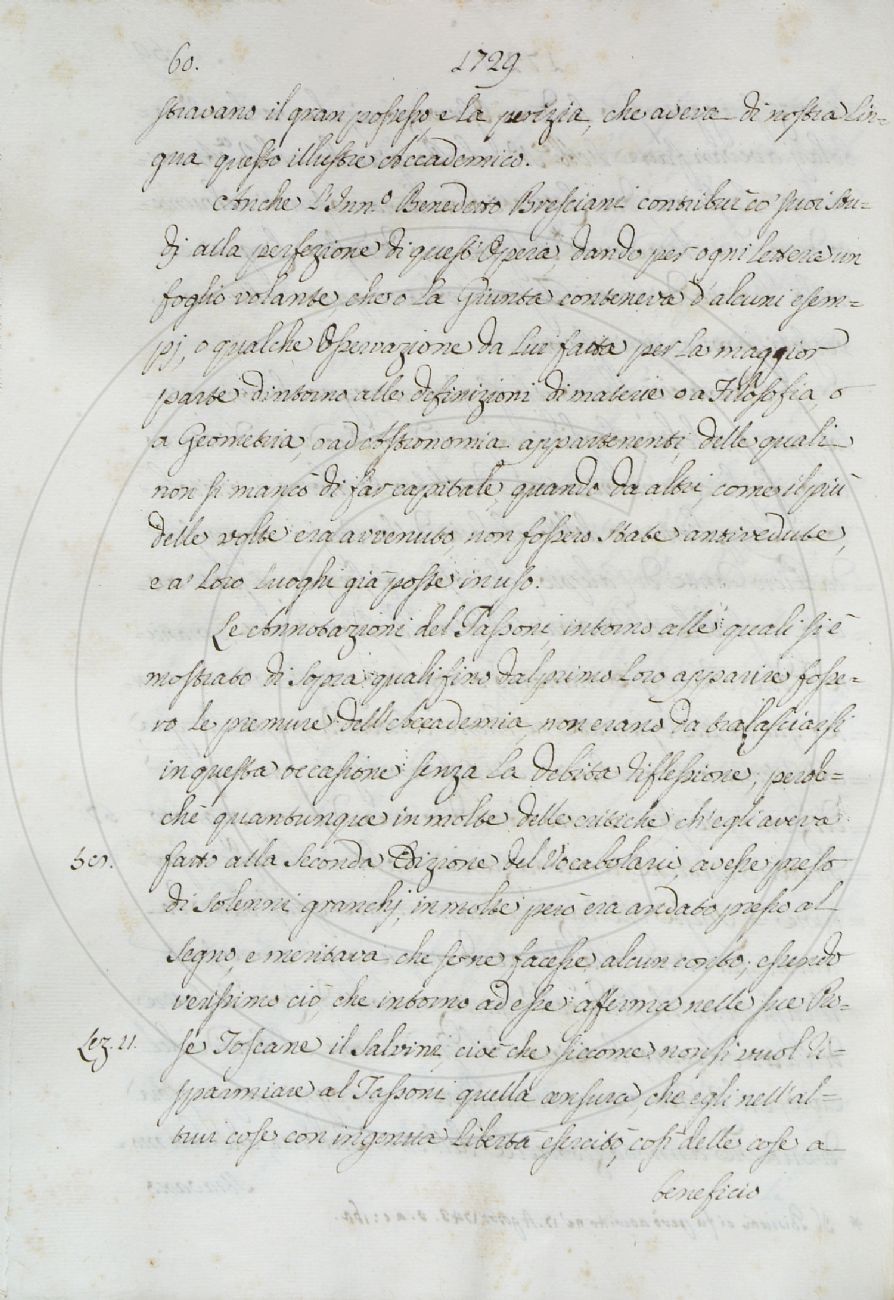 60. 1729
stravano il gran possesso, e la perizia, che aveva di nostra Lin=
gua questo illustre Accademico.
Anche L'Inn.º Benedetto Bresciani contribuì co' suoi stu=
dj alla perfezione di quest'Opera, dando per ogni lettera un
foglio volante, che o la Giunta conteneva d'alcuni esem=
pj, o qualche Osservazione da lui fatta per la maggior
parte dintorno alle definizioni di materie o a Filosofia, o
a Geometria, o ad Astronomia appartenenti, delle quali
non si mancò di far capitale, quando da altri, come il più
delle volte era avvenuto, non fossero state antivedute,
e a' loro luoghi già poste in uso.
Le Annotazioni del Tassoni, intorno alle quali si è
mostrato di sopra quali fino dal primo loro apparire fosse=
ro le premure dell'Accademia, non erano da tralasciarsi
in questa occasione senza la debita riflessione; peroc=
chè quantunque in molte delle critiche ch'egli aveva
fatto alla Seconda Edizione del Vocabolario, avesse preso
di solenni granchj, in molte però era andato presso al
segno, e meritava che se ne facesse alcun conto; essendo
verissimo ciò, che intorno ad esse afferma nelle sue Pro=
Lez. 11. se Toscane il Salvini, cioè che siccome non si vuol ri=
sparmiare al Tassoni quella censura, che egli nell'al=
trui cose con ingenua libertà esercitò, così delle cose a
beneficio